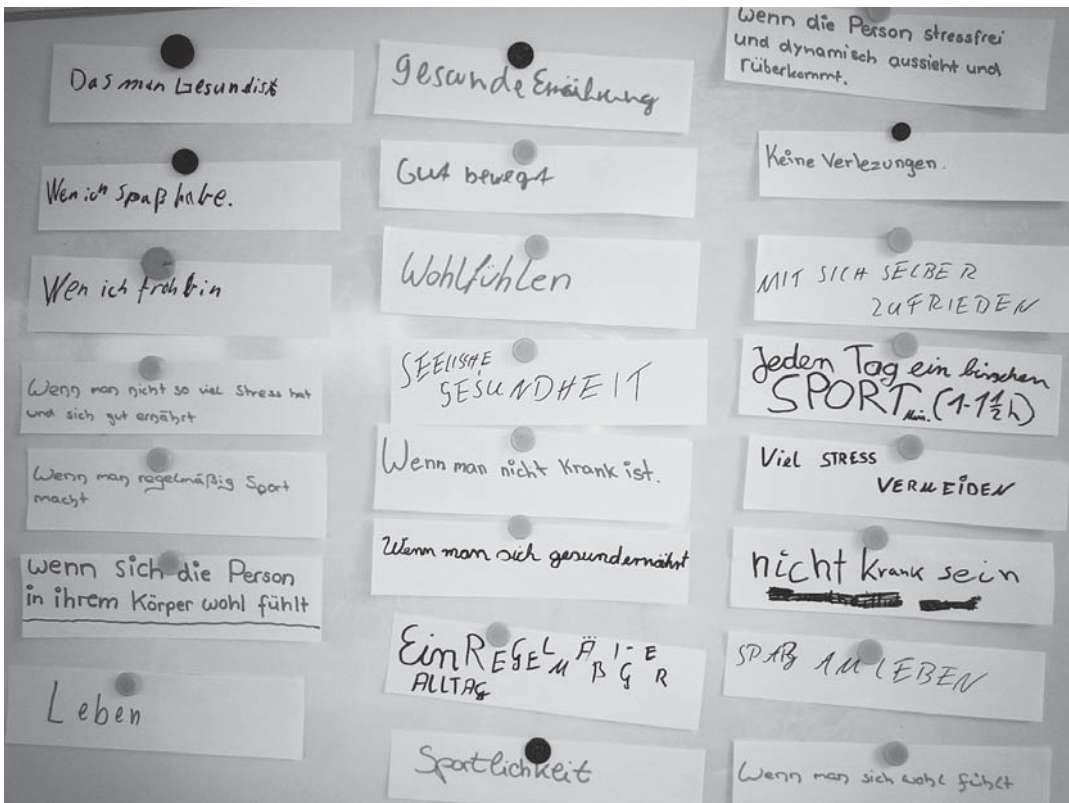 Das man Gesundist
Wen ich Spaß habe.
Wen ich froh bin
Wenn man nicht so viel Stress hat
und sich gut ernährt
Wenn man regelmäßig Sport
macht
wenn sich die Person
in ihrem Körper wohl fühlt
Leben
gesunde Ernährung
Gut bewegt
Wohlfühlen
SEELISCHE
GESUNDHEIT
Wenn man nicht Krank ist.
Wenn man sich gesundernährt
Ein REGELMÄßIGER
ALLTAG
Sportlichkeit
wenn die Person stressfrei
und dynamisch aussieht und
rüberkommt.
Keine Verlezungen.
MIT SICH SELBER
ZUFRIEDEN
Jeden Tag ein bisschen
SPORT Min. (1-1½h)
Viel STRESS
VERMEIDEN
nicht Krank sein
SPAß AM LEBEN
Wenn man sich wohl fühlt